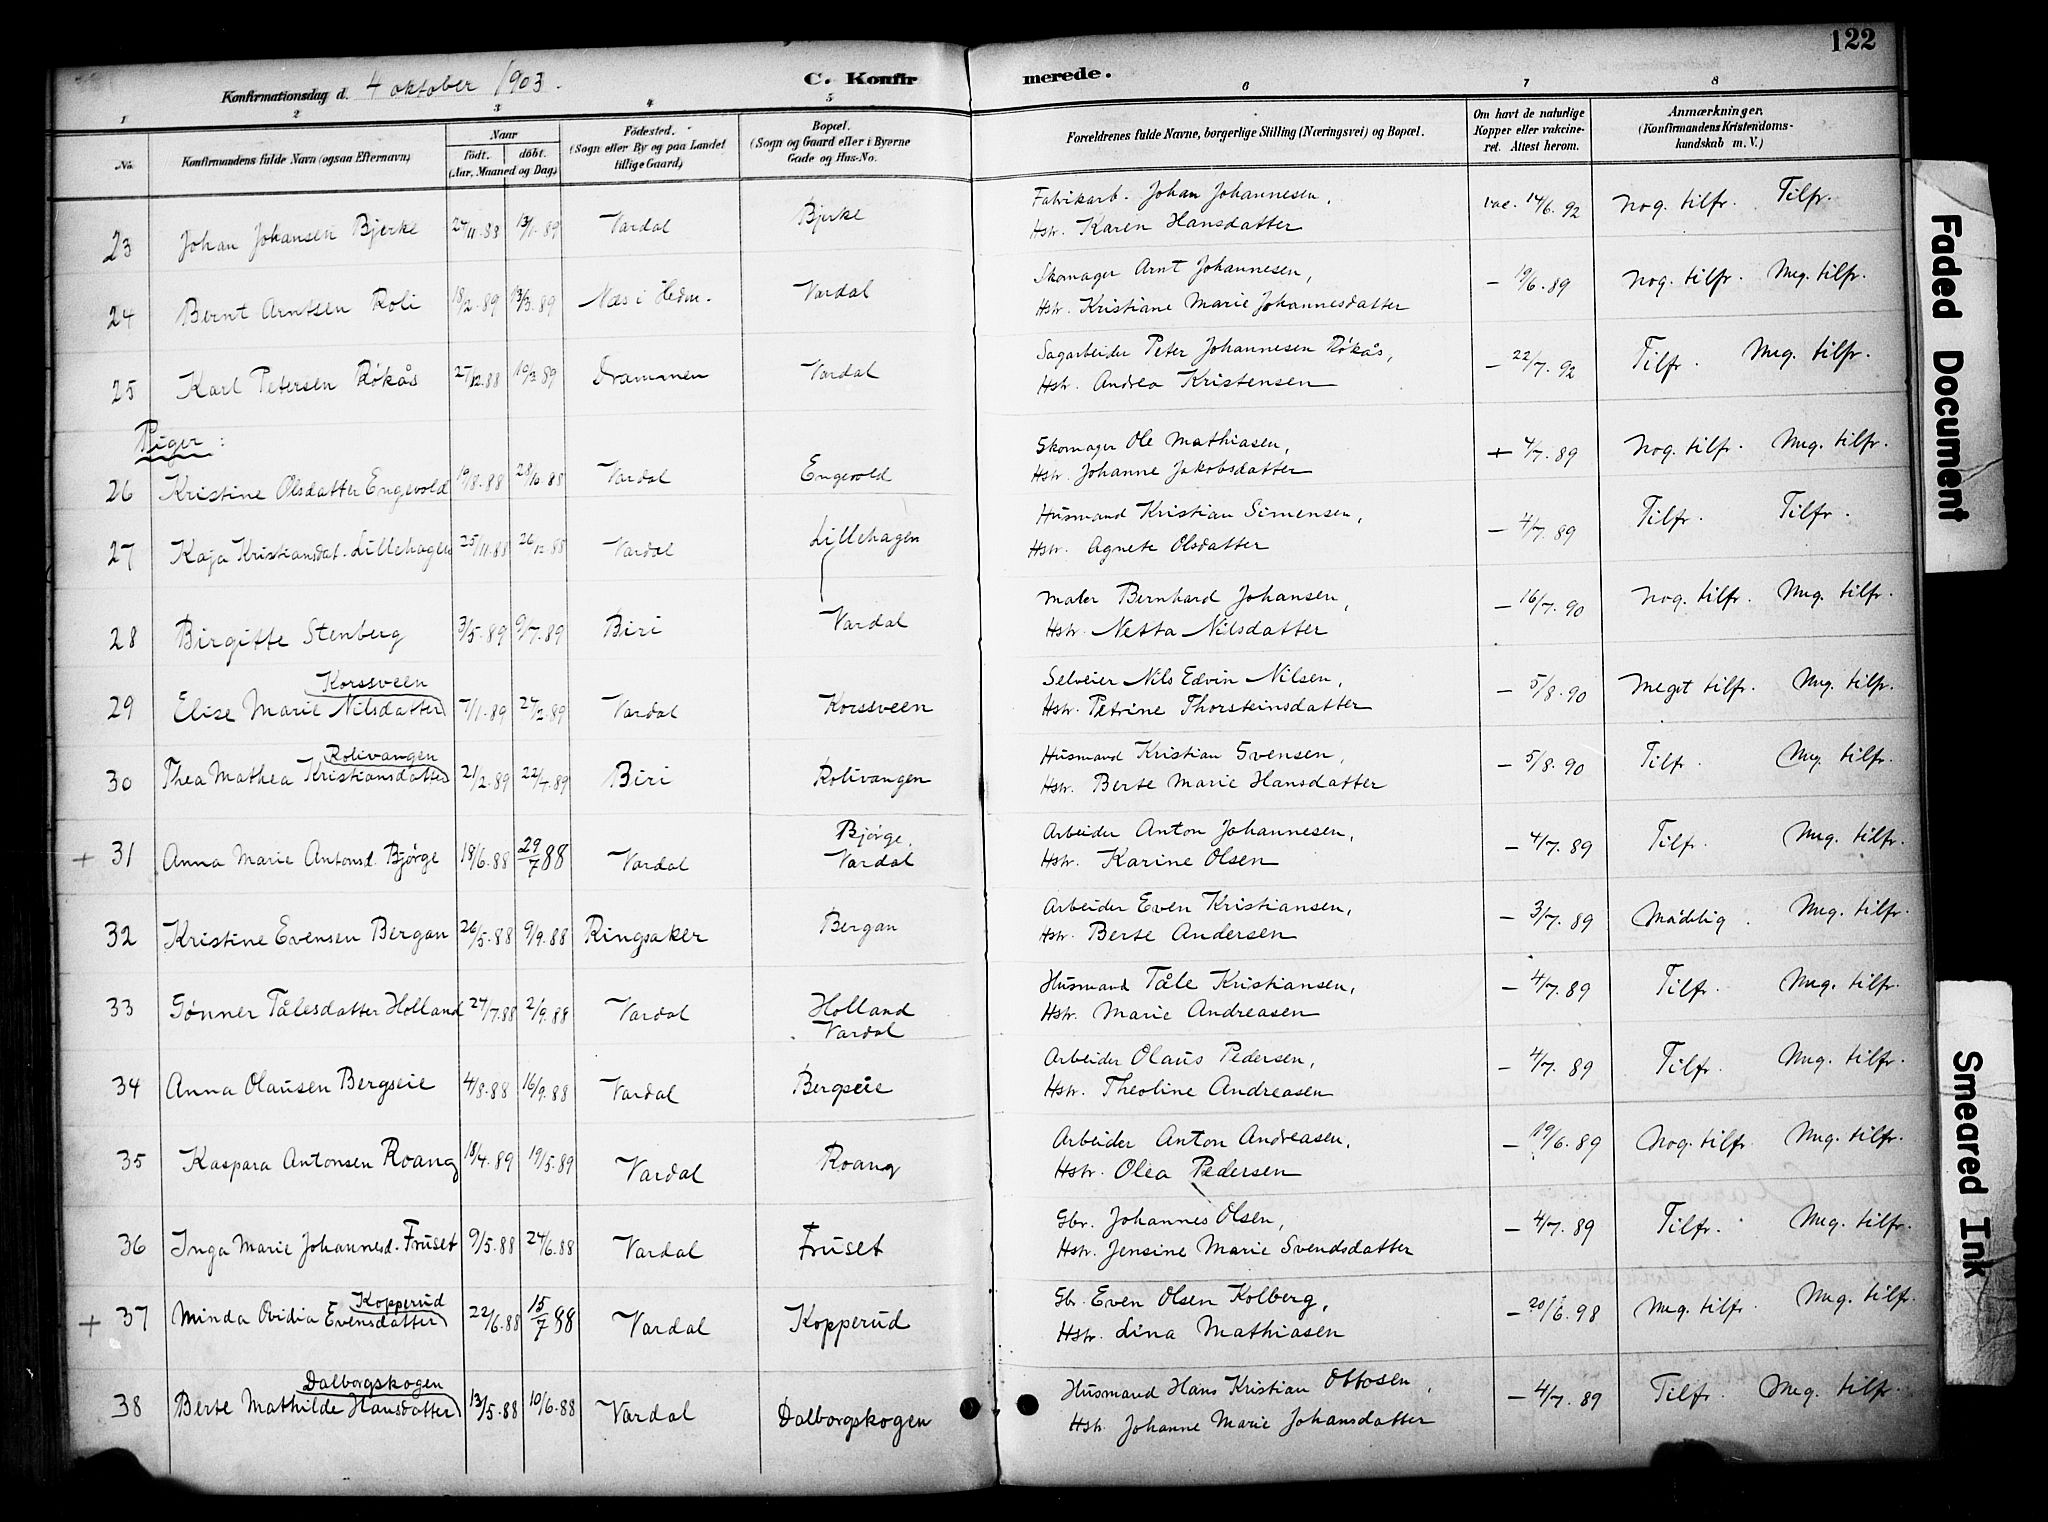 122
Konfirmationsdag d. 4 oktober 1903.
C. Konfirmerede.
1 2 3 4 5 6 7 8
No. Konfirmandens fulde Navn (ogsaa Efternavn) Naar födt. döbt. (Aar, Maaned og Dag) Födested. (Sogn eller By og paa Landet tillige Gaard) Bopæl. (Sogn og Gaard eller i Byerne Gade og Hus-No. Forældrenes fulde Navne, borgerlige Stilling (Næringsvei) og Bopæl. Om havt de naturlige Kopper eller vakcineret. Attest herom. Anmærkninger. (Konfirmandens Kristendomskundskab m. V.)
23 Johan Johansen Bjerke 27/11.88 13/1.89 Vardal Bjerke Fabrikarb. Johan Johannesen, vac. 14/6.92 Nog. tilfr. Tilfr.
Hstr. Karen Hansdatter
24 Bernt Arntsen Roli 18/2.89 13/3.89 Næs i Hedm. Vardal Skomager Arnt Johannesen, — 19/6.89 Nog. tilfr. Meg. tilfr.
Hstr. Kristiane Marie Johannesdatter
25 Karl Petersen Røkås 27/12.88 10/3.89 Drammen Vardal Sagarbeider Peter Johannesen Røkås, — 22/7.92 Tilfr. Meg. tilfr.
Hstr. Andrea Kristensen
Piger:
26 Kristine Olsdatter Engevold 19/8.88 28/10.88 Vardal Engevold Skomager Ole Mathiasen, + 4/7.89 Nog. tilfr. Meg. tilfr.
Hstr. Johanne Jakobsdatter
27 Kaja Kristiansdat. Lillehagen 25/11.88 26/12.88 Vardal Lillehagen Husmand Kristian Simensen, — 4/7.89 Tilfr. Tilfr.
Hstr. Agnete Olsdatter
28 Birgitte Stenberg 3/5.89 9/7.89 Biri Vardal Maler Bernhard Johansen, — 16/7.90 Nog. tilfr. Meg. tilfr.
Hstr. Netta Nilsdatter
Korssveen
29 Elise Marie Nilsdatter 7/1.89 24/2.89 Vardal Korssveen Selveier Nils Edvin Nilsen, — 5/8.90 Meget tilfr. Meg. tilfr.
Hstr. Petrine Thorsteinsdatter
Rolivangen
30 Thea Mathea Kristiansdatter 21/2.89 22/4.89 Biri Rolivangen Husmand Kristian Svensen, — 5/8.90 Tilfr. Meg. tilfr.
Hstr. Berte Marie Hansdatter
+ 31 Anna Marie Antonsd. Bjørge 18/6.88 29/7 88 Vardal Bjørge, Vardal Arbeider Anton Johannesen, — 4/7.89 Tilfr. Meg. tilfr.
Hstr. Karine Olsen
32 Kristine Evensen Bergan 26/5.88 9/9.88 Ringsaker Bergan Arbeider Even Kristiansen, — 3/7.89 Mådelig. Meg. tilfr.
Hstr. Berte Andersen
33 Gønner Tålesdatter Holland 27/7.88 2/9.88 Vardal Holland Vardal Husmand Tåle Kristiansen, — 4/7.89 Tilfr. Meg. tilfr.
Hstr. Marie Andreasen
34 Anna Olausen Bergseie 4/8.88 16/9.88 Vardal Bergseie Arbeider Olaus Pedersen, — 4/7.89 Tilfr. Meg. tilfr.
Hstr. Theoline Andreasen
35 Kaspara Antonsen Roang 18/4.89 19/5.89 Vardal Roang Arbeider Anton Andreasen, — 19/6.89 Nog. tilfr. Meg. tilfr.
Hstr. Olea Pedersen
36 Inga Marie Johannesd. Fruset 9/5.88 24/6.88 Vardal Fruset Gbr. Johannes Olsen, — 4/7.89 Tilfr. Meg. tilfr.
Hstr. Jensine Marie Svendsdatter
Kopperud
+ 37 Minda Ovidia Evensdatter 22/6.88 15/7 88 Vardal Kopperud Gbr. Even Olsen Kolberg, — 20/6.98 Meg. tilfr. Meg. tilfr.
Hstr. Lina Mathiasen
Dalborgskogen
38 Berte Mathilde Hansdatter 13/5.88 10/6.88 Vardal Dalborgskogen Husmand Hans Kristian Ottosen, — 4/7.89 Tilfr. Meg. tilfr.
Hstr. Johanne Marie Johansdatter
Faded Document
Smeared Ink